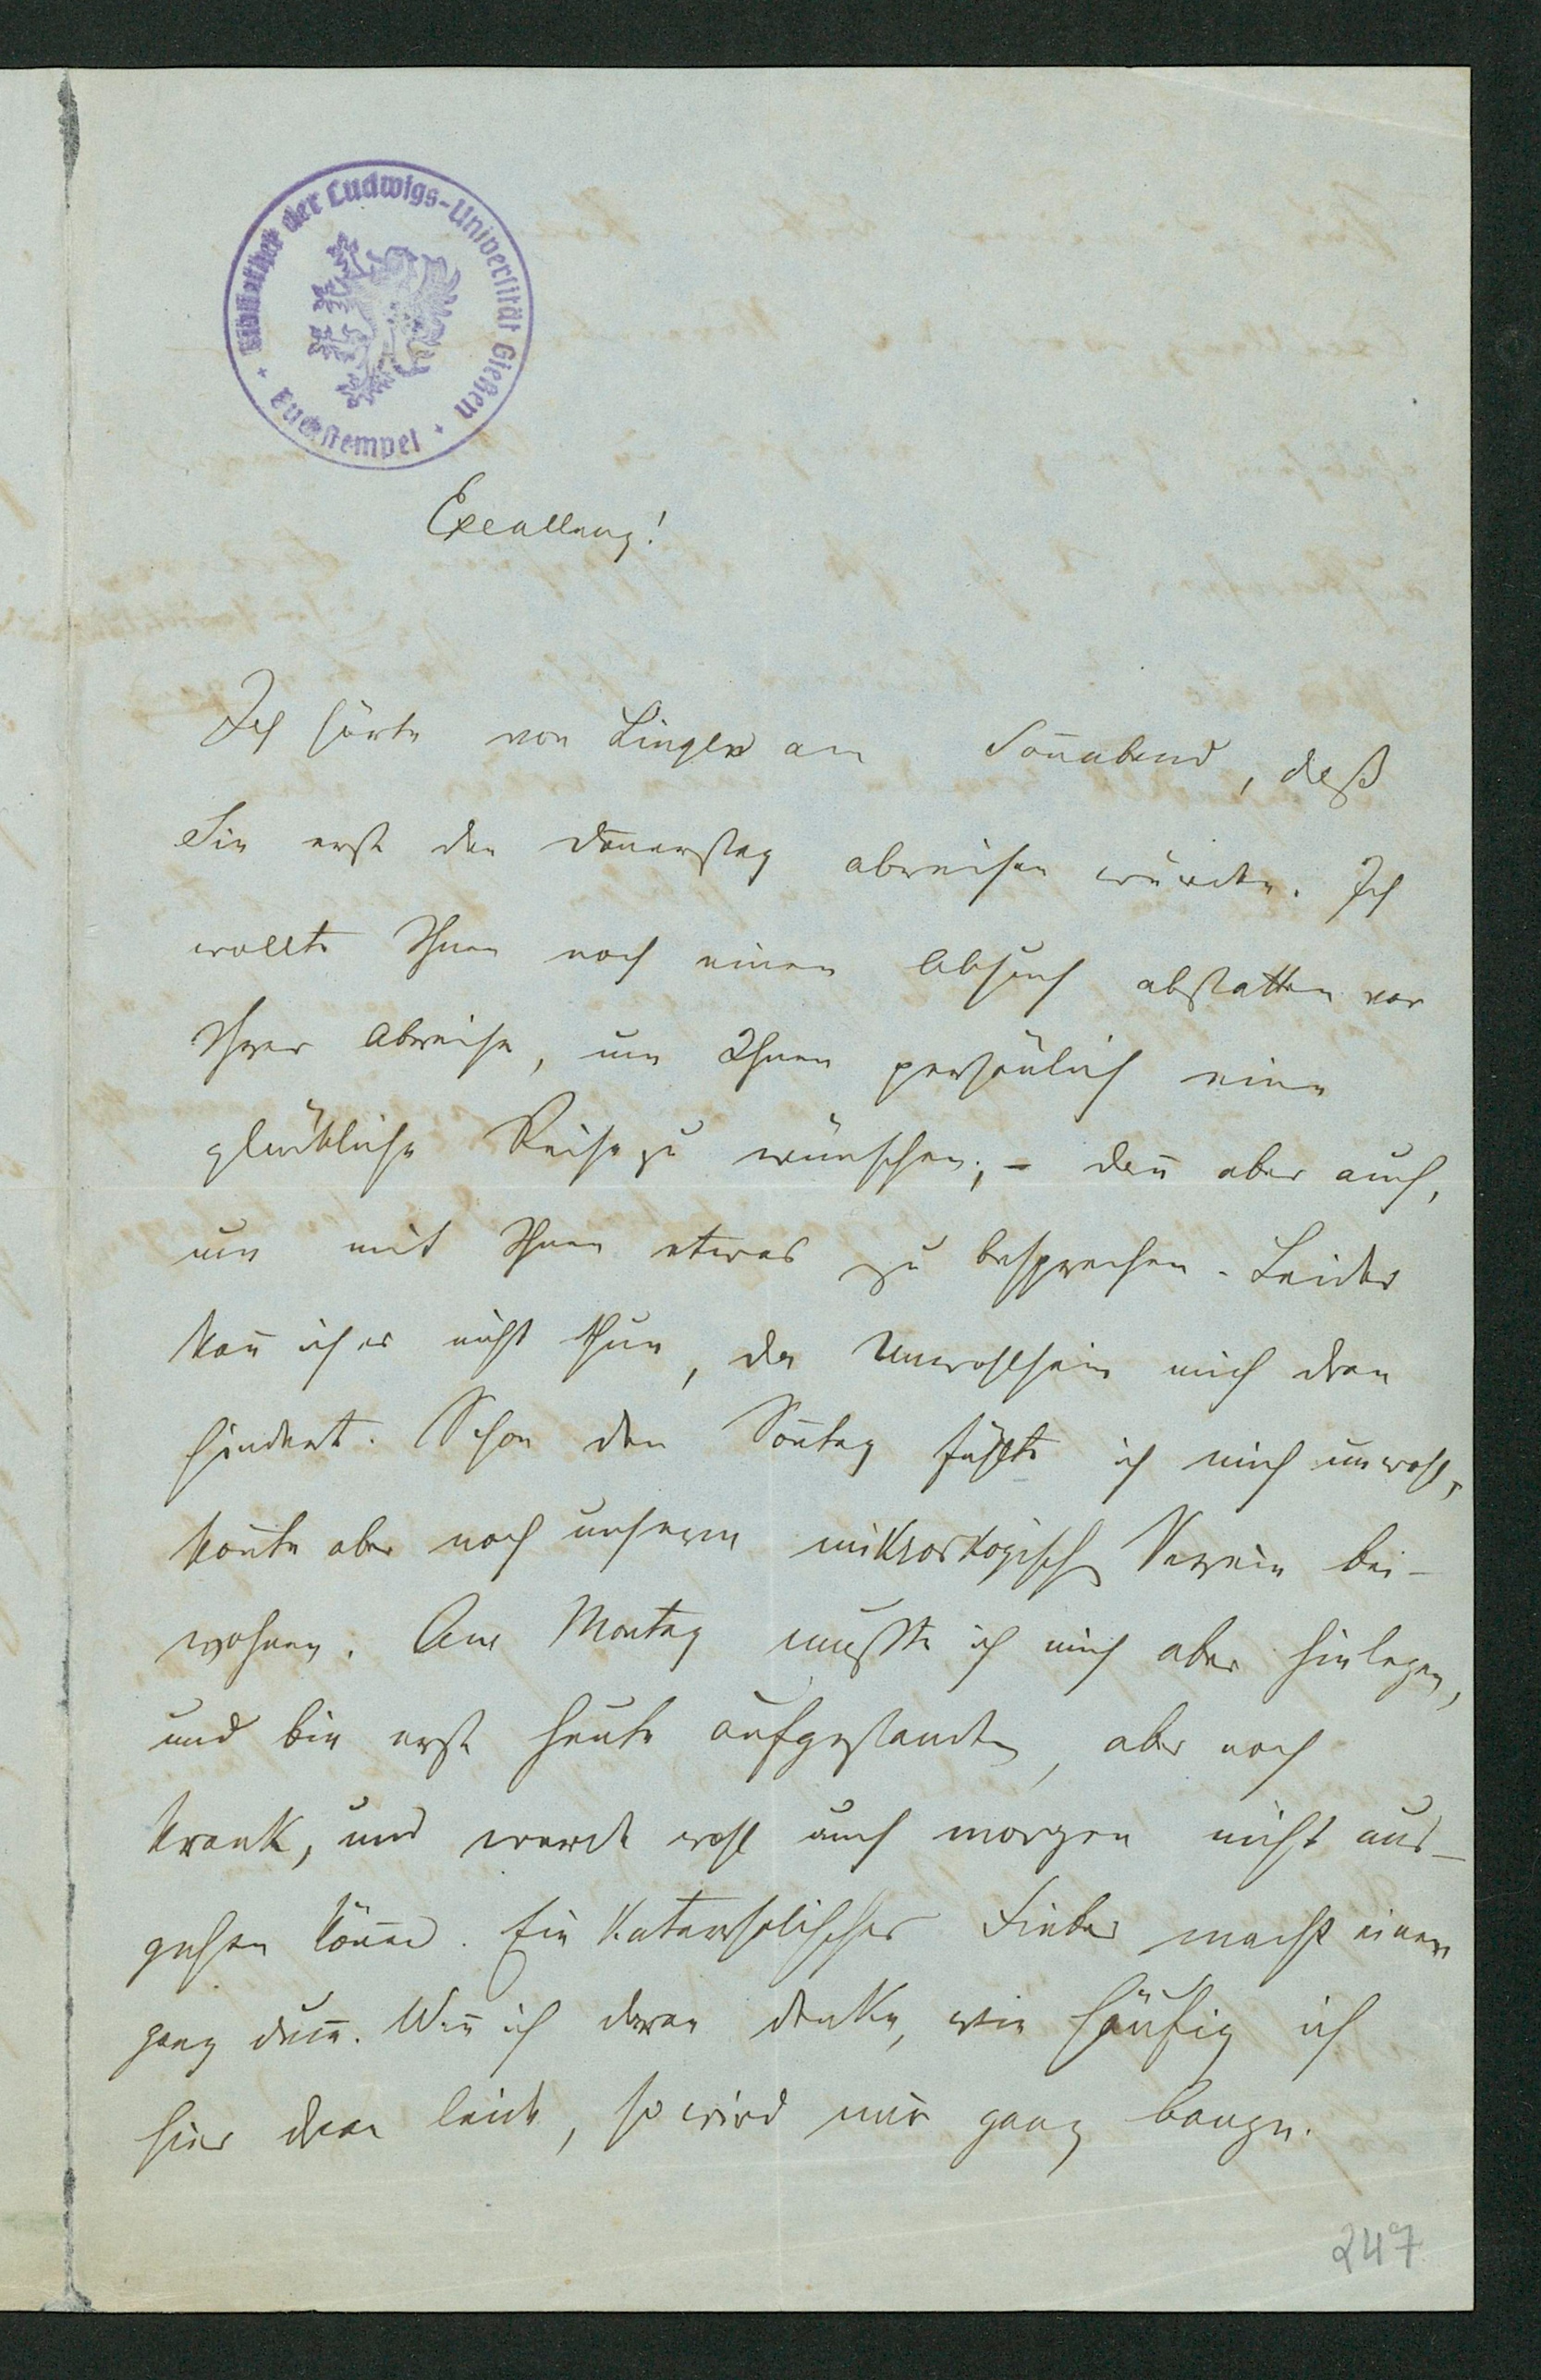 Bibliothek der Ludwigs-Universität Gießen
Buchstempel
Excellenz!
Ich hörte von Lingen am Soñabend, daß
Sie erst den Doñerstag abreisen würden. Ich
wollte Ihnen noch einen Besuch abstatten vor
Ihrer Abreise, um Ihnen persönlich eine
glückliche Reise zu wünschen, – dañ aber auch,
um mit Ihnen etwas zu besprechen. Leider
kañ ich es nicht thun, da Unwohlsein mich dran
hindert. Schon den Soñtag fühlte ich mich unwohl,
koñte aber noch unserem mikroskopischen Verein bei-
wohnen. Am Montag mußte ich mich aber hinlegen,
und bin erst heute aufgestanden, aber noch
krank, und werde wohl auch morgen nicht aus-
gehen köñen. Ein katarrhalisches Fieber macht einen
ganz duṁ. Weñ ich daran denke, wie häufig ich
hier dran leide, so wird mir ganz bange.
247